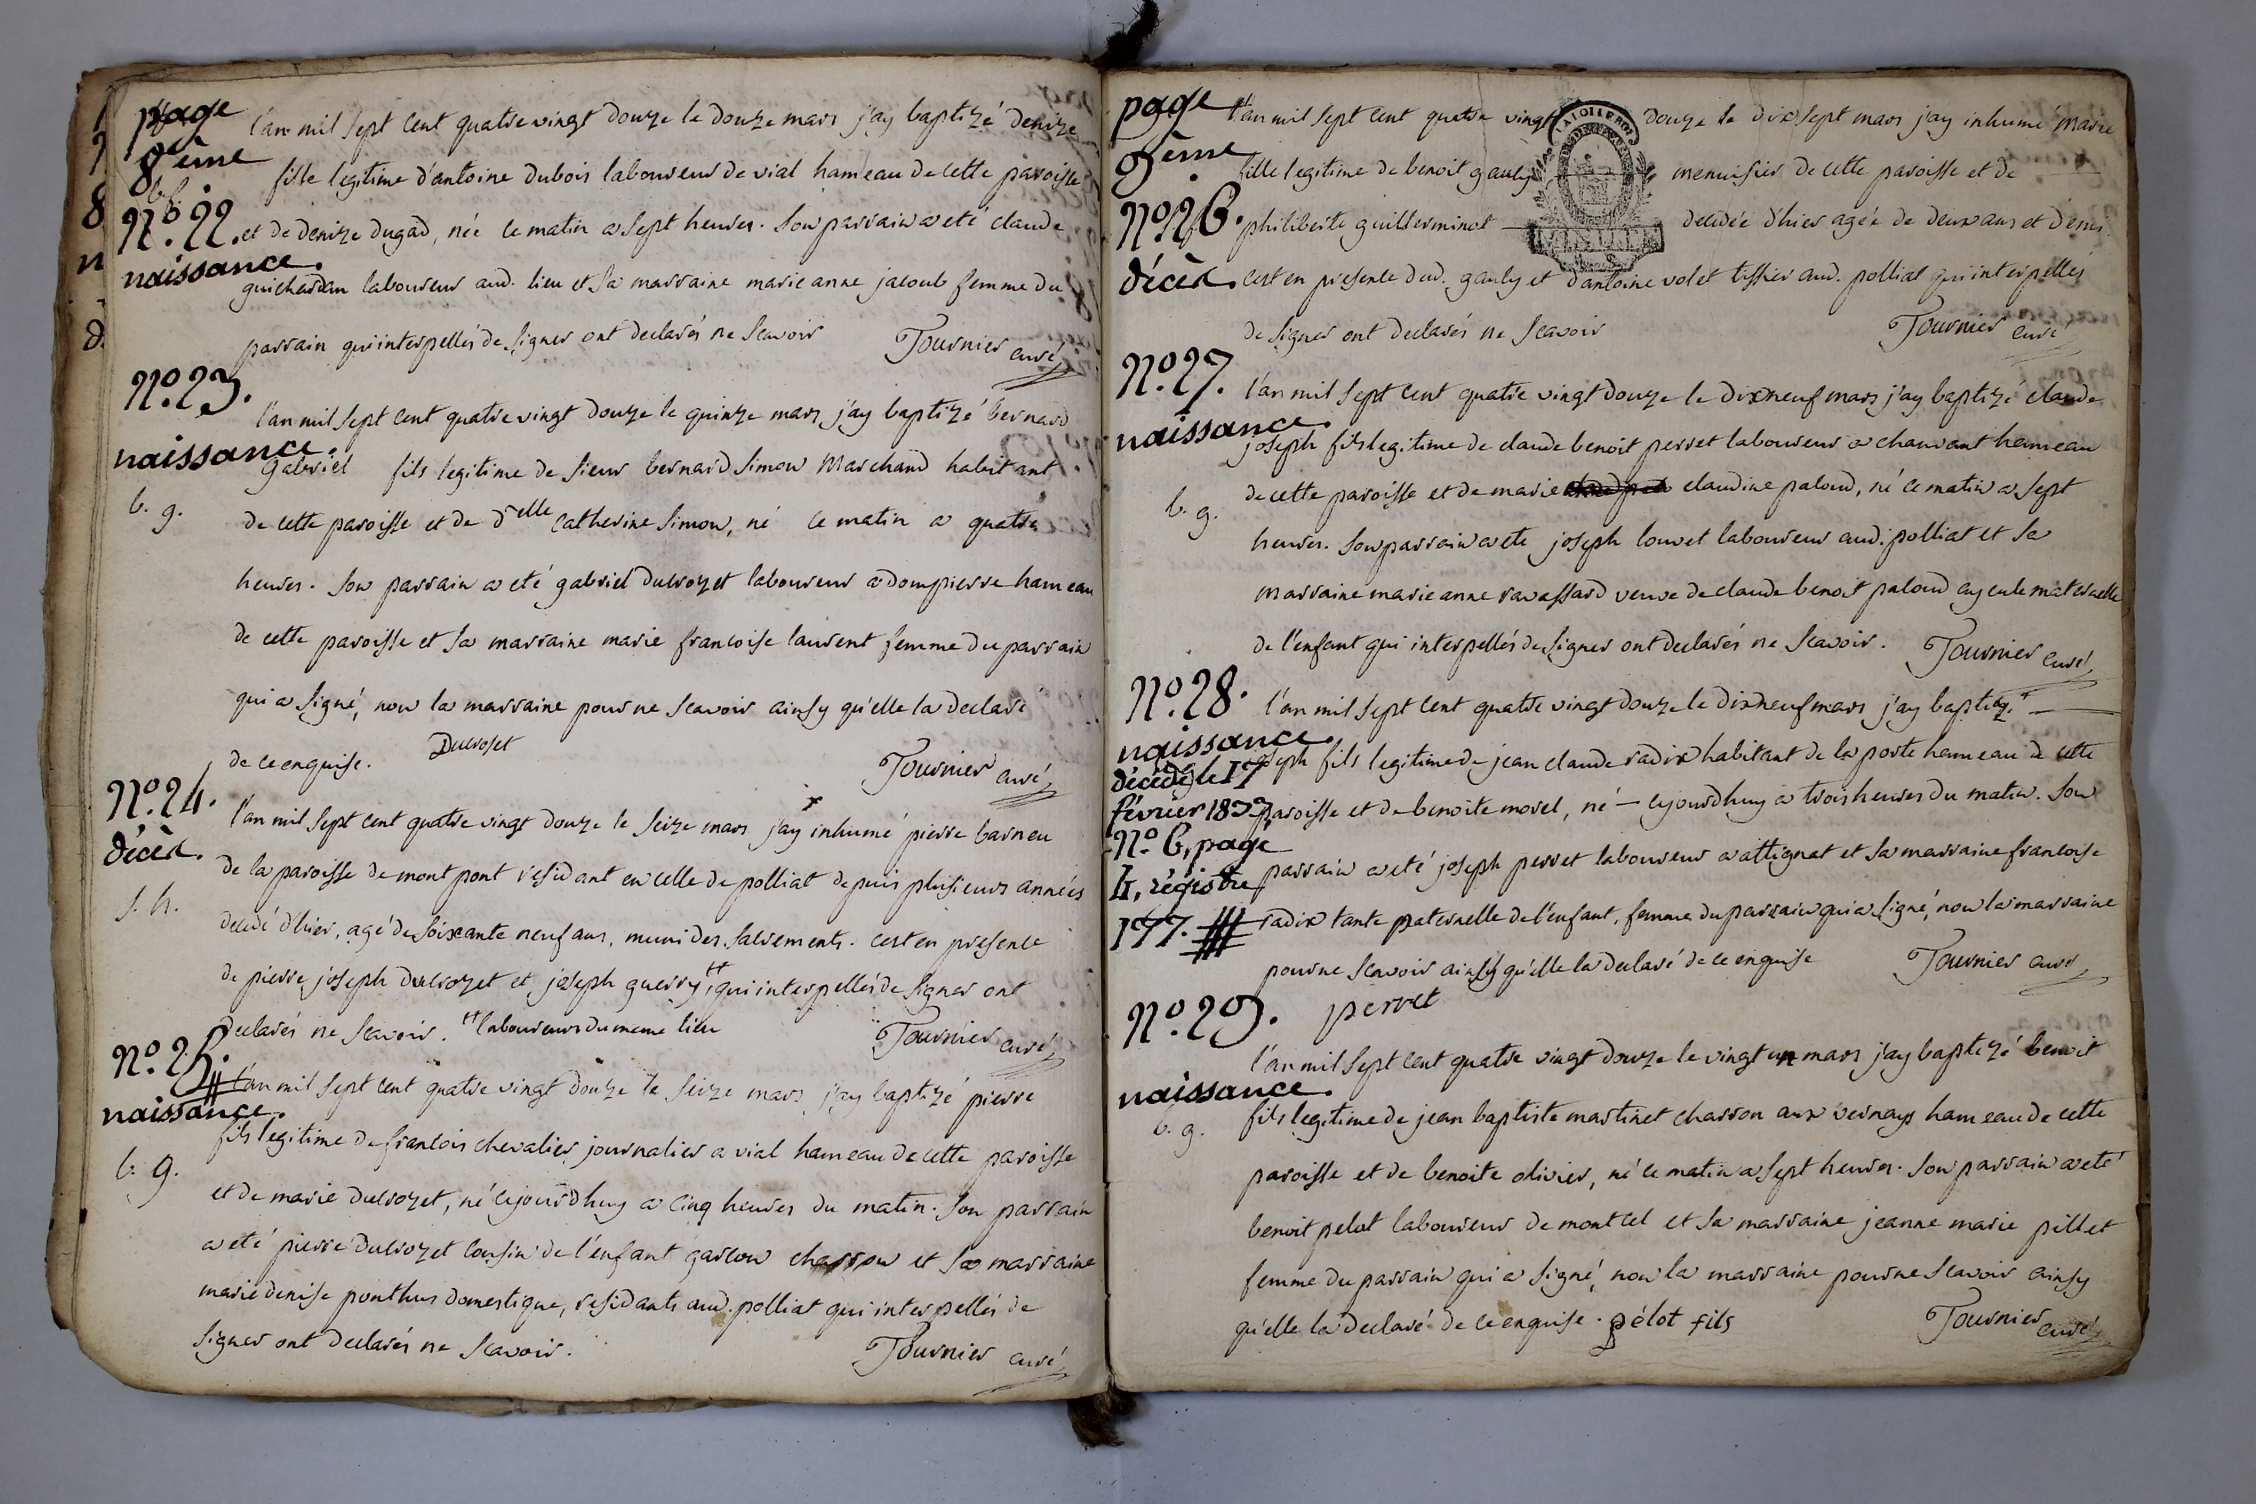 page
8ème
b. f.
N.º 22.
naissance.
l'an mil sept cent quatre vingt douze le douze mars j'ay baptizé denize
fille legitime d'antoine dubois laboureur de vial hameau de cette paroisse
et de denize dugad, née ce matin a sept heures. Son parrain a eté claude
guichardan laboureur aud. lieu et sa marraine marie anne jacoub femme du
parrain qui interpellés de signer ont declarés ne scavoir
Tournier curé
N.º 23.
naissance.
b. g.
l'an mil sept cent quatre vingt douze le quinze mars j'ay baptizé bernard
gabriel fils legitime de sieur bernard simon marchand habitant
de cette paroisse et de delle catherine simon, né ce matin a quatre
heures. Son parrain a eté gabriel ducrozet laboureur a dompierre hameau
de cette paroisse et sa marraine marie francoise laurent femme du parrain
qui a signé, non la marraine pour ne scavoir ainsy qu'elle la declaré
de ce enquise. Ducroset
Tournier curé
N.º 24.
décès.
s. h.
l'an mil sept cent quatre vingt douze le seize mars j'ay inhumé pierre barneu
de la paroisse de montpont residant en celle de polliat depuis plusieurs années
decedé d'hier, agé de soixante neuf ans, muni des sacrements. C'est en presence
de pierre joseph ducrozet et joseph guerry ++, qui interpellés de signer ont
declarés ne scavoir. ++ laboureurs du meme lieu
Tournier curé
N.º 25.
naissance.
b. g.
l'an mil sept cent quatre vingt douze le seize mars j'ay baptizé pierre
fils legitime de francois chevalier journalier a vial hameau de cette paroisse
et de marie ducrozet, né cejourdhuy a cinq heures du matin. Son parrain
a eté pierre ducrozet cousin de l'enfant garcon charron et sa marraine
marie denise ponthus domestique, residants aud. polliat qui interpellés de
signer ont declarés ne scavoir.
Tournier curé
page
9ème.
N.º 26.
décès.
l'an mil sept cent quatre vingt douze le dix sept mars j'ay inhumé marie
LA LOI LE ROI
fille legitime de benoit gauly menuisier de cette paroisse et de
philiberte guillerminot decedée d'hier agée de deux ans et demi
c'est en presence dud. gauly et d'antoine volet tissier aud. polliat qui interpellés
de signer ont declarés ne scavoir
Tournier curé
N.º 27.
naissance.
b. g.
l'an mil sept cent quatre vingt douze le dixneuf mars j'ay baptizé claude
joseph fils legitime de claude benoit perret laboureur a chanvant hameau
de cette paroisse et de marie claudine paloud, né ce matin a sept
heures. Son parrain a ete joseph louvet laboureur aud. polliat et sa
marraine marie anne ravassard veuve de claude benoit paloud ayeule maternelle
de l'enfant qui interpellés de signer ont declarés ne scavoir.
Tournier curé
N.º 28.
naissance.
décédé le 17
février
N.º 6, page
4, régistre
177.
l'an mil sept cent quatre vingt douze le dixneuf mars j'ay baptizé
joseph fils legitime de jean claude radix habitant de la poste hameau de cette
paroisse et de benoite morel, né cejourdhuy a trois heures du matin. Son
parrain a eté joseph perret laboureur a attignat et sa marraine francoise
radix tante paternelle de l'enfant, femme du parrain qui a signé, non la marraine
pour ne scavoir ainsy qu'elle la declaré de ce enquise
Tournier curé
perret
N.º 29.
naissance.
b. g.
l'an mil sept cent quatre vingt douze le vingt un mars j'ay baptizé benoit
fils legitime de jean baptiste martinet charron aux vernays hameau de cette
paroisse et de benoite olivier, né ce matin a sept heures. Son parrain a eté
benoit pelot laboureur de montcel et sa marraine jeanne marie pillet
femme du parrain qui a signé, non la marraine pour ne scavoir ainsy
qu'elle la declaré de ce enquise. pélot fils
Tournier curé